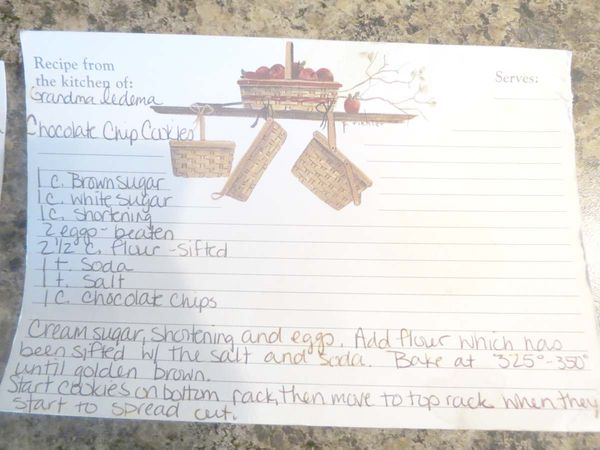 Recipe from
the kitchen of:
Serves:
Grandma Iedema
Chocolate Chip Cookies
1 c. Brown sugar
1 c. white sugar
1 c. shortening
2 eggs - beaten
2 1/2 c. flour - sifted
1 t. Soda
1 t. Salt
1 c. chocolate chips
Cream sugar, shortening and eggs. Add flour which has
been sifted w/ the salt and soda. Bake at 325°-350°
until golden brown.
Start cookies on bottom rack, then move to top rack when they
start to spread out.